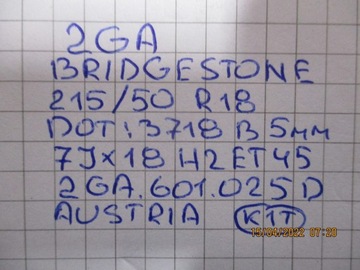 2GA
BRIDGESTONE
215/50 R18
DOT: 3718 B 5мм
7J×18 H2 ET45
2GA.601.025D
AUSTRIA K1T
15/04/2022 07:20